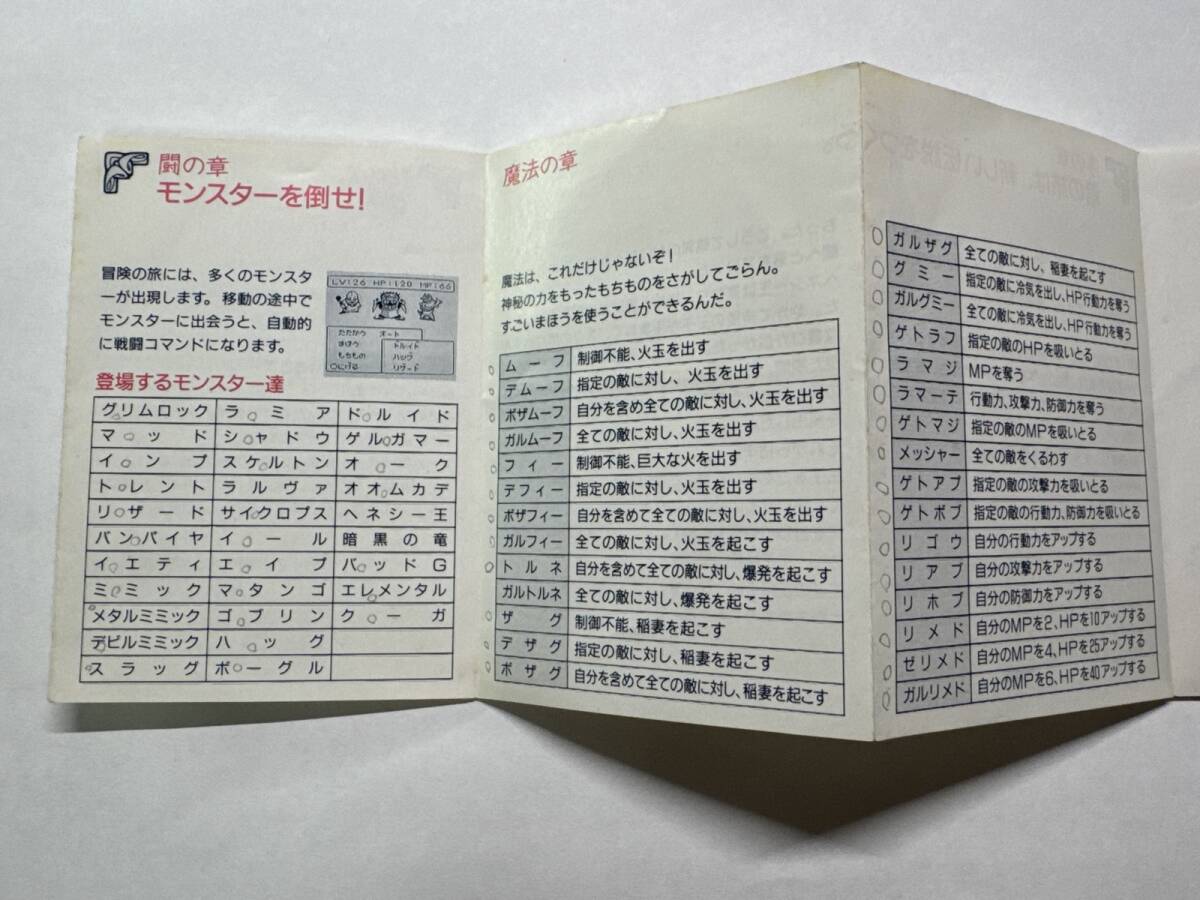 闘の章
モンスターを倒せ!
冒険の旅には、多くのモンスタ
ーが出現します。移動の途中で
モンスターに出会うと、自動的
に戦闘コマンドになります。
LV:26 HP:120 MP:66
たたかう オート
まほう ドルイド
もちもの ハッグ
にげる リザード
登場するモンスター達
グリムロック ラミア ドルイド
マッド シャドウ ゲルガマー
インプ スケルトン オーク
トレント ラルヴァ オオムカデ
リザード サイクロプス ヘネシー王
バンパイヤ イール 暗黒の竜
イエティ エイプ バッドG
ミミック マタンゴ エレメンタル
メタルミミック ゴブリン クーガ
デビルミミック ハッグ
スラッグ ボーグル
魔法の章
魔法は、これだけじゃないぞ!
神秘の力をもったもちものをさがしてごらん。
すごいまほうを使うことができるんだ。
ムーフ 制御不能、火玉を出す
デムーフ 指定の敵に対し、火玉を出す
ボザムーフ 自分を含め全ての敵に対し、火玉を出す
ガルムーフ 全ての敵に対し、火玉を出す
フィー 制御不能、巨大な火を出す
デフィー 指定の敵に対し、火玉を出す
ボザフィー 自分を含めて全ての敵に対し、火玉を出す
ガルフィー 全ての敵に対し、火玉を起こす
トルネ 自分を含めて全ての敵に対し、爆発を起こす
ガルトルネ 全ての敵に対し、爆発を起こす
ザグ 制御不能、稲妻を起こす
デザグ 指定の敵に対し、稲妻を起こす
ボザグ 自分を含めて全ての敵に対し、稲妻を起こす
ガルザグ 全ての敵に対し、稲妻を起こす
グミー 指定の敵に冷気を出し、HP行動力を奪う
ガルグミー 全ての敵に冷気を出し、HP行動力を奪う
ゲトラフ 指定の敵のHPを吸いとる
ラマジ MPを奪う
ラマーテ 行動力、攻撃力、防御力を奪う
ゲトマジ 指定の敵のMPを吸いとる
メッシャー 全ての敵をくるわす
ゲトアブ 指定の敵の攻撃力を吸いとる
ゲトボブ 指定の敵の行動力、防御力を吸いとる
リゴウ 自分の行動力をアップする
リアブ 自分の攻撃力をアップする
リホブ 自分の防御力をアップする
リメド 自分のMPを2、HPを10アップする
ゼリメド 自分のMPを4、HPを25アップする
ガルリメド 自分のMPを6、HPを40アップする